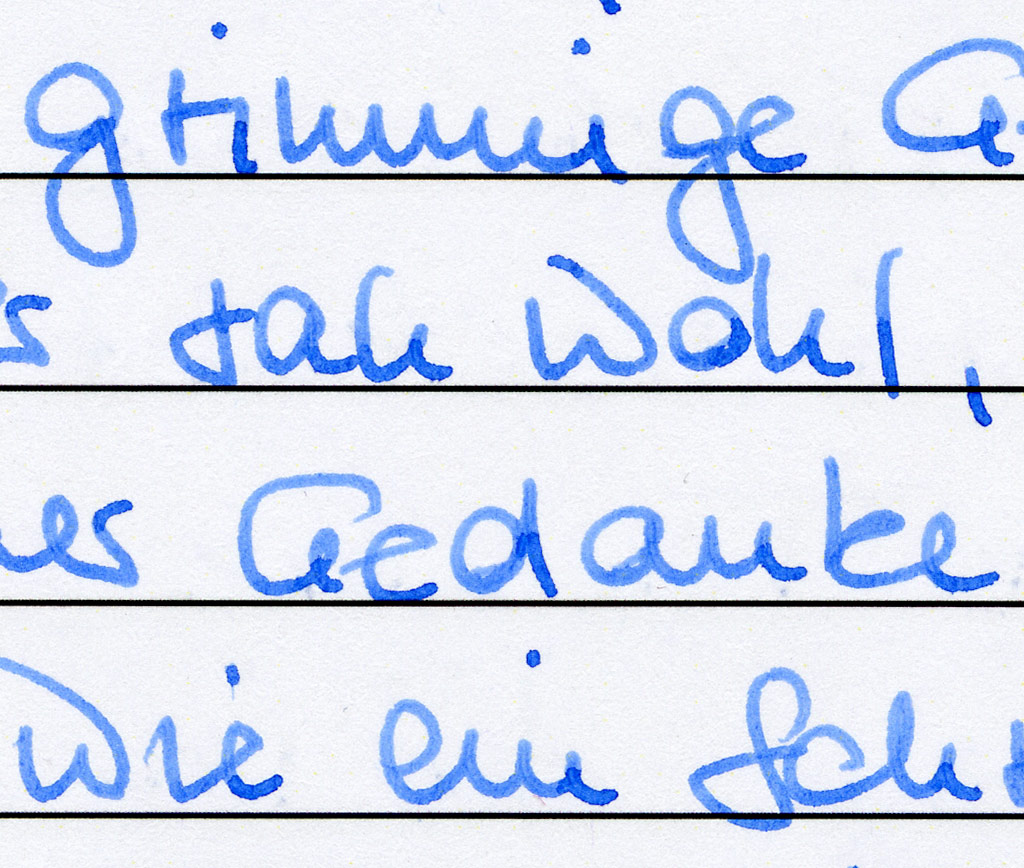 grimmige G
s sah wohl,
es Gedanke
Wie ein Sch